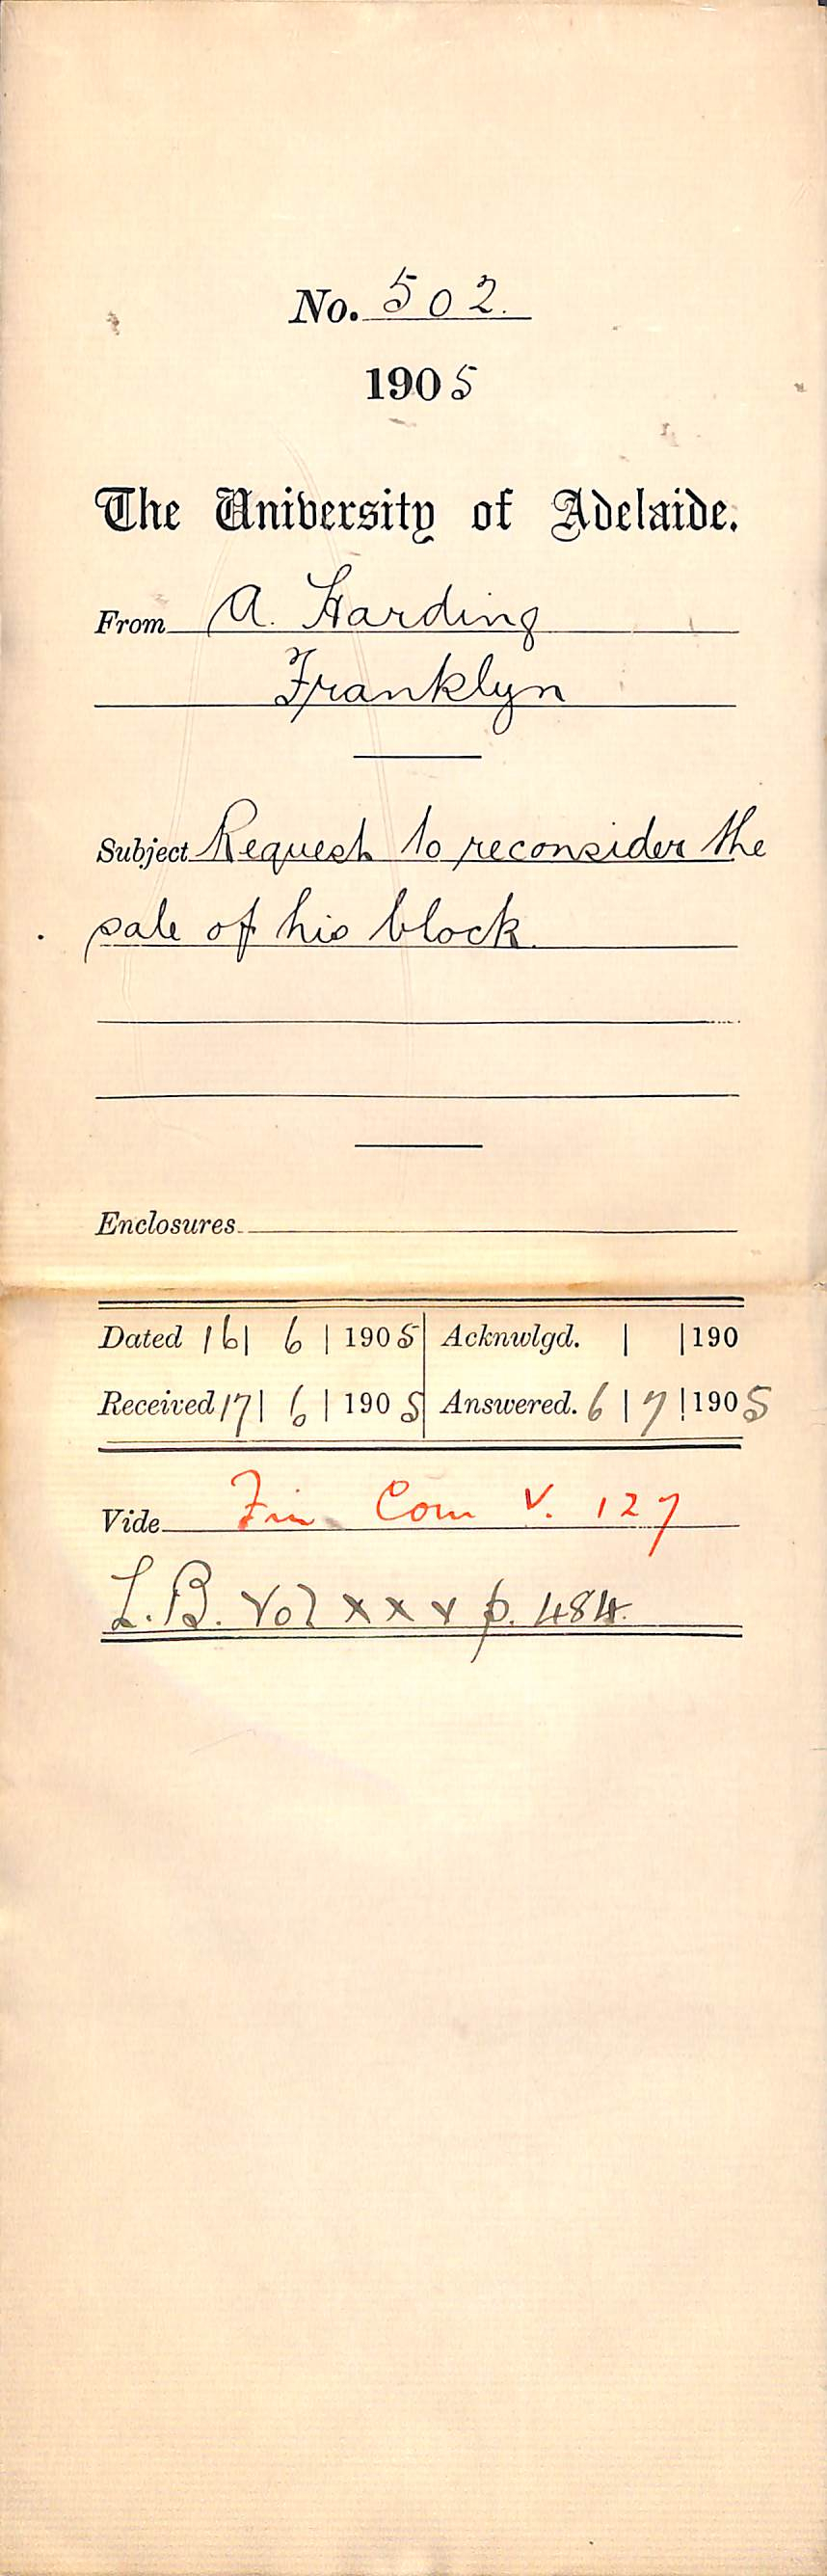 No. 502.
1905
The University of Adelaide.
From A. Harding
Franklyn
Subject Request to reconsider the
sale of his block.
Enclosures
Dated 16 | 6 | 1905 | Acknwlgd. | | 190
Received 17 | 6 | 1905 | Answered. 6 | 7 | 1905
Vide Fin Com V. 127
L.B. Vol xxv p. 484.